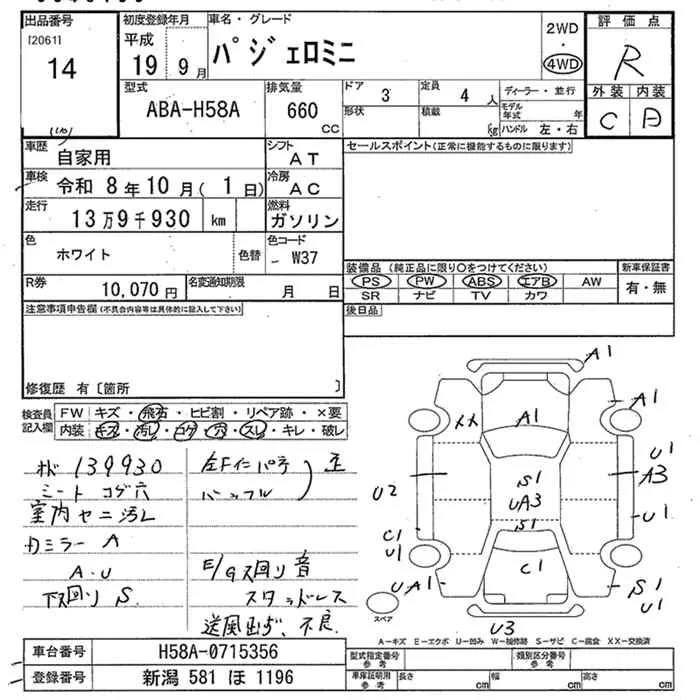 出品番号
[2061]
14
初度登録年月
平成
19 9 月
車名・グレード
パジェロミニ
2WD
・
4WD
評価点
R
外装 内装
C B
型式
ABA-H58A
排気量
660
CC
ドア 3
定員 4 人
形状
積載 kg
ディーラー・並行
モデル年式 年
ハンドル 左・右
車歴
自家用
シフト
AT
車検
令和 8年10月(1日)
冷房
AC
走行
13万9千930 km
燃料
ガソリン
色
ホワイト
色替
色コード
W37
R券
10,070 円
名変通知期限
月 日
セールスポイント(正常に機能するものに限ります)
装備品 (純正品に限り○をつけてください)
新車保証書
PS PW ABS エアB AW
有・無
SR ナビ TV カワ
後日品
注意事項申告欄(不具合内容等は具体的に記入して下さい)
修復歴 有〔箇所 〕
検査員記入欄
FW キズ・飛石・ヒビ割・リペア跡・×要
内装 キズ・汚レ・コゲ・穴・スレ・キレ・破レ
139930
シートコゲ穴
室内ヤニ汚レ
カミラー A
A・U
下回り S
左Fインパネ
バッフル
歪
E/G 回り 音
スタッドレス
送風出ず、不良
A1
A1
XX
A1
U1
A3
U2
S1
UA3
S1
U1
C1
U1
C1
UA1
S1
U1
U3
スペア
A-キズ E-エクボ U-凹み W-補修跡 S-サビ C-腐食 XX-交換済
車台番号
H58A-0715356
登録番号
新潟 581 ほ 1196
型式指定番号
参考
類別区分番号
参考
車庫証明用
参考
長さ cm
幅 cm
高さ cm